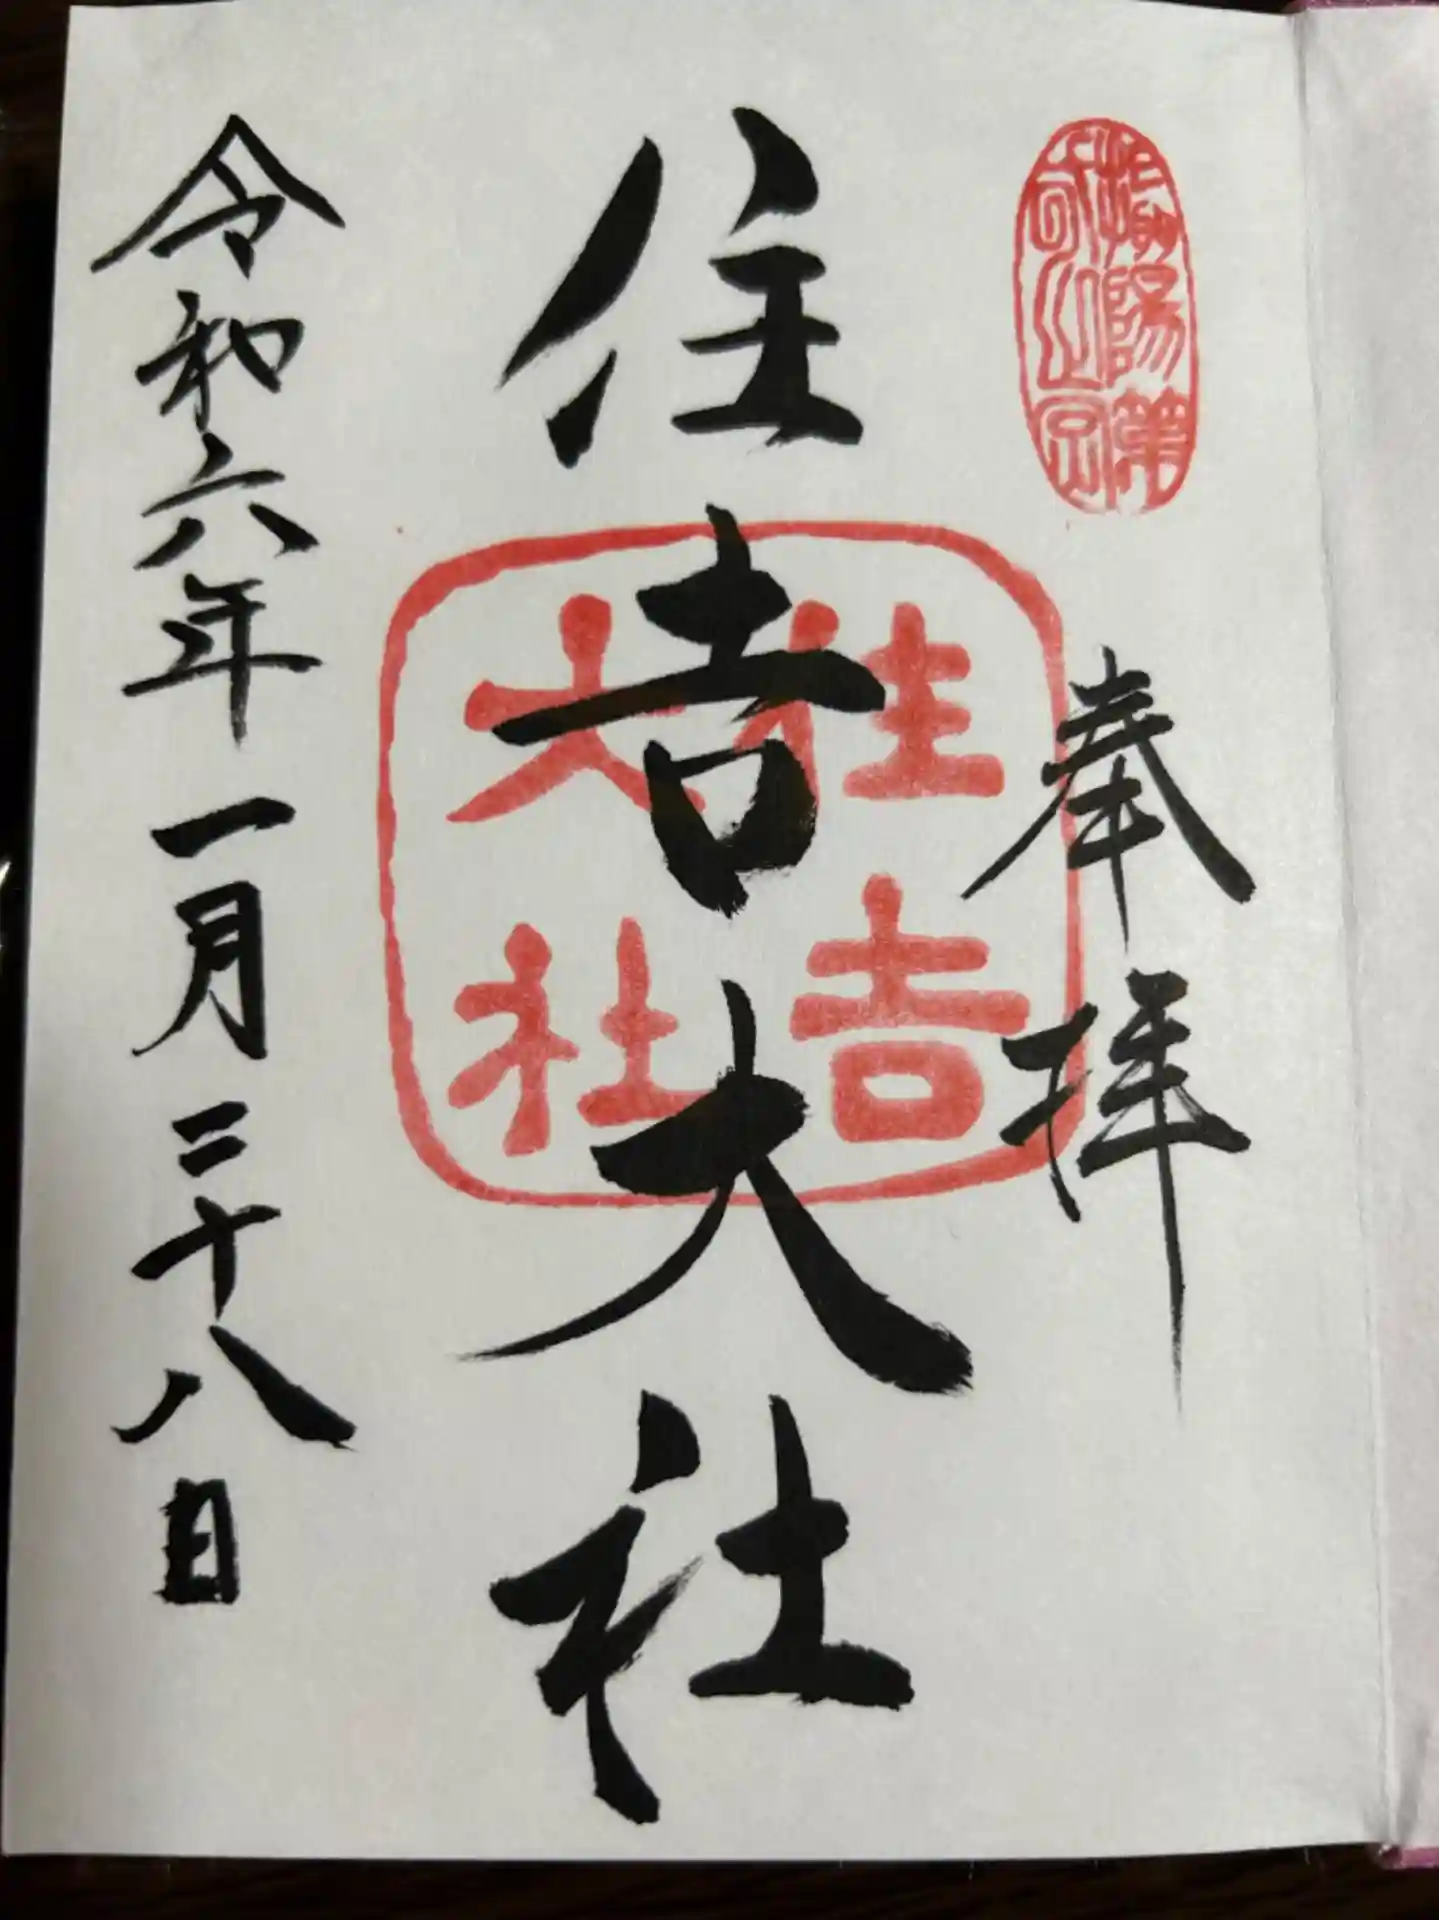 奉拝
住吉大社
住吉大社
令和六年一月二十八日